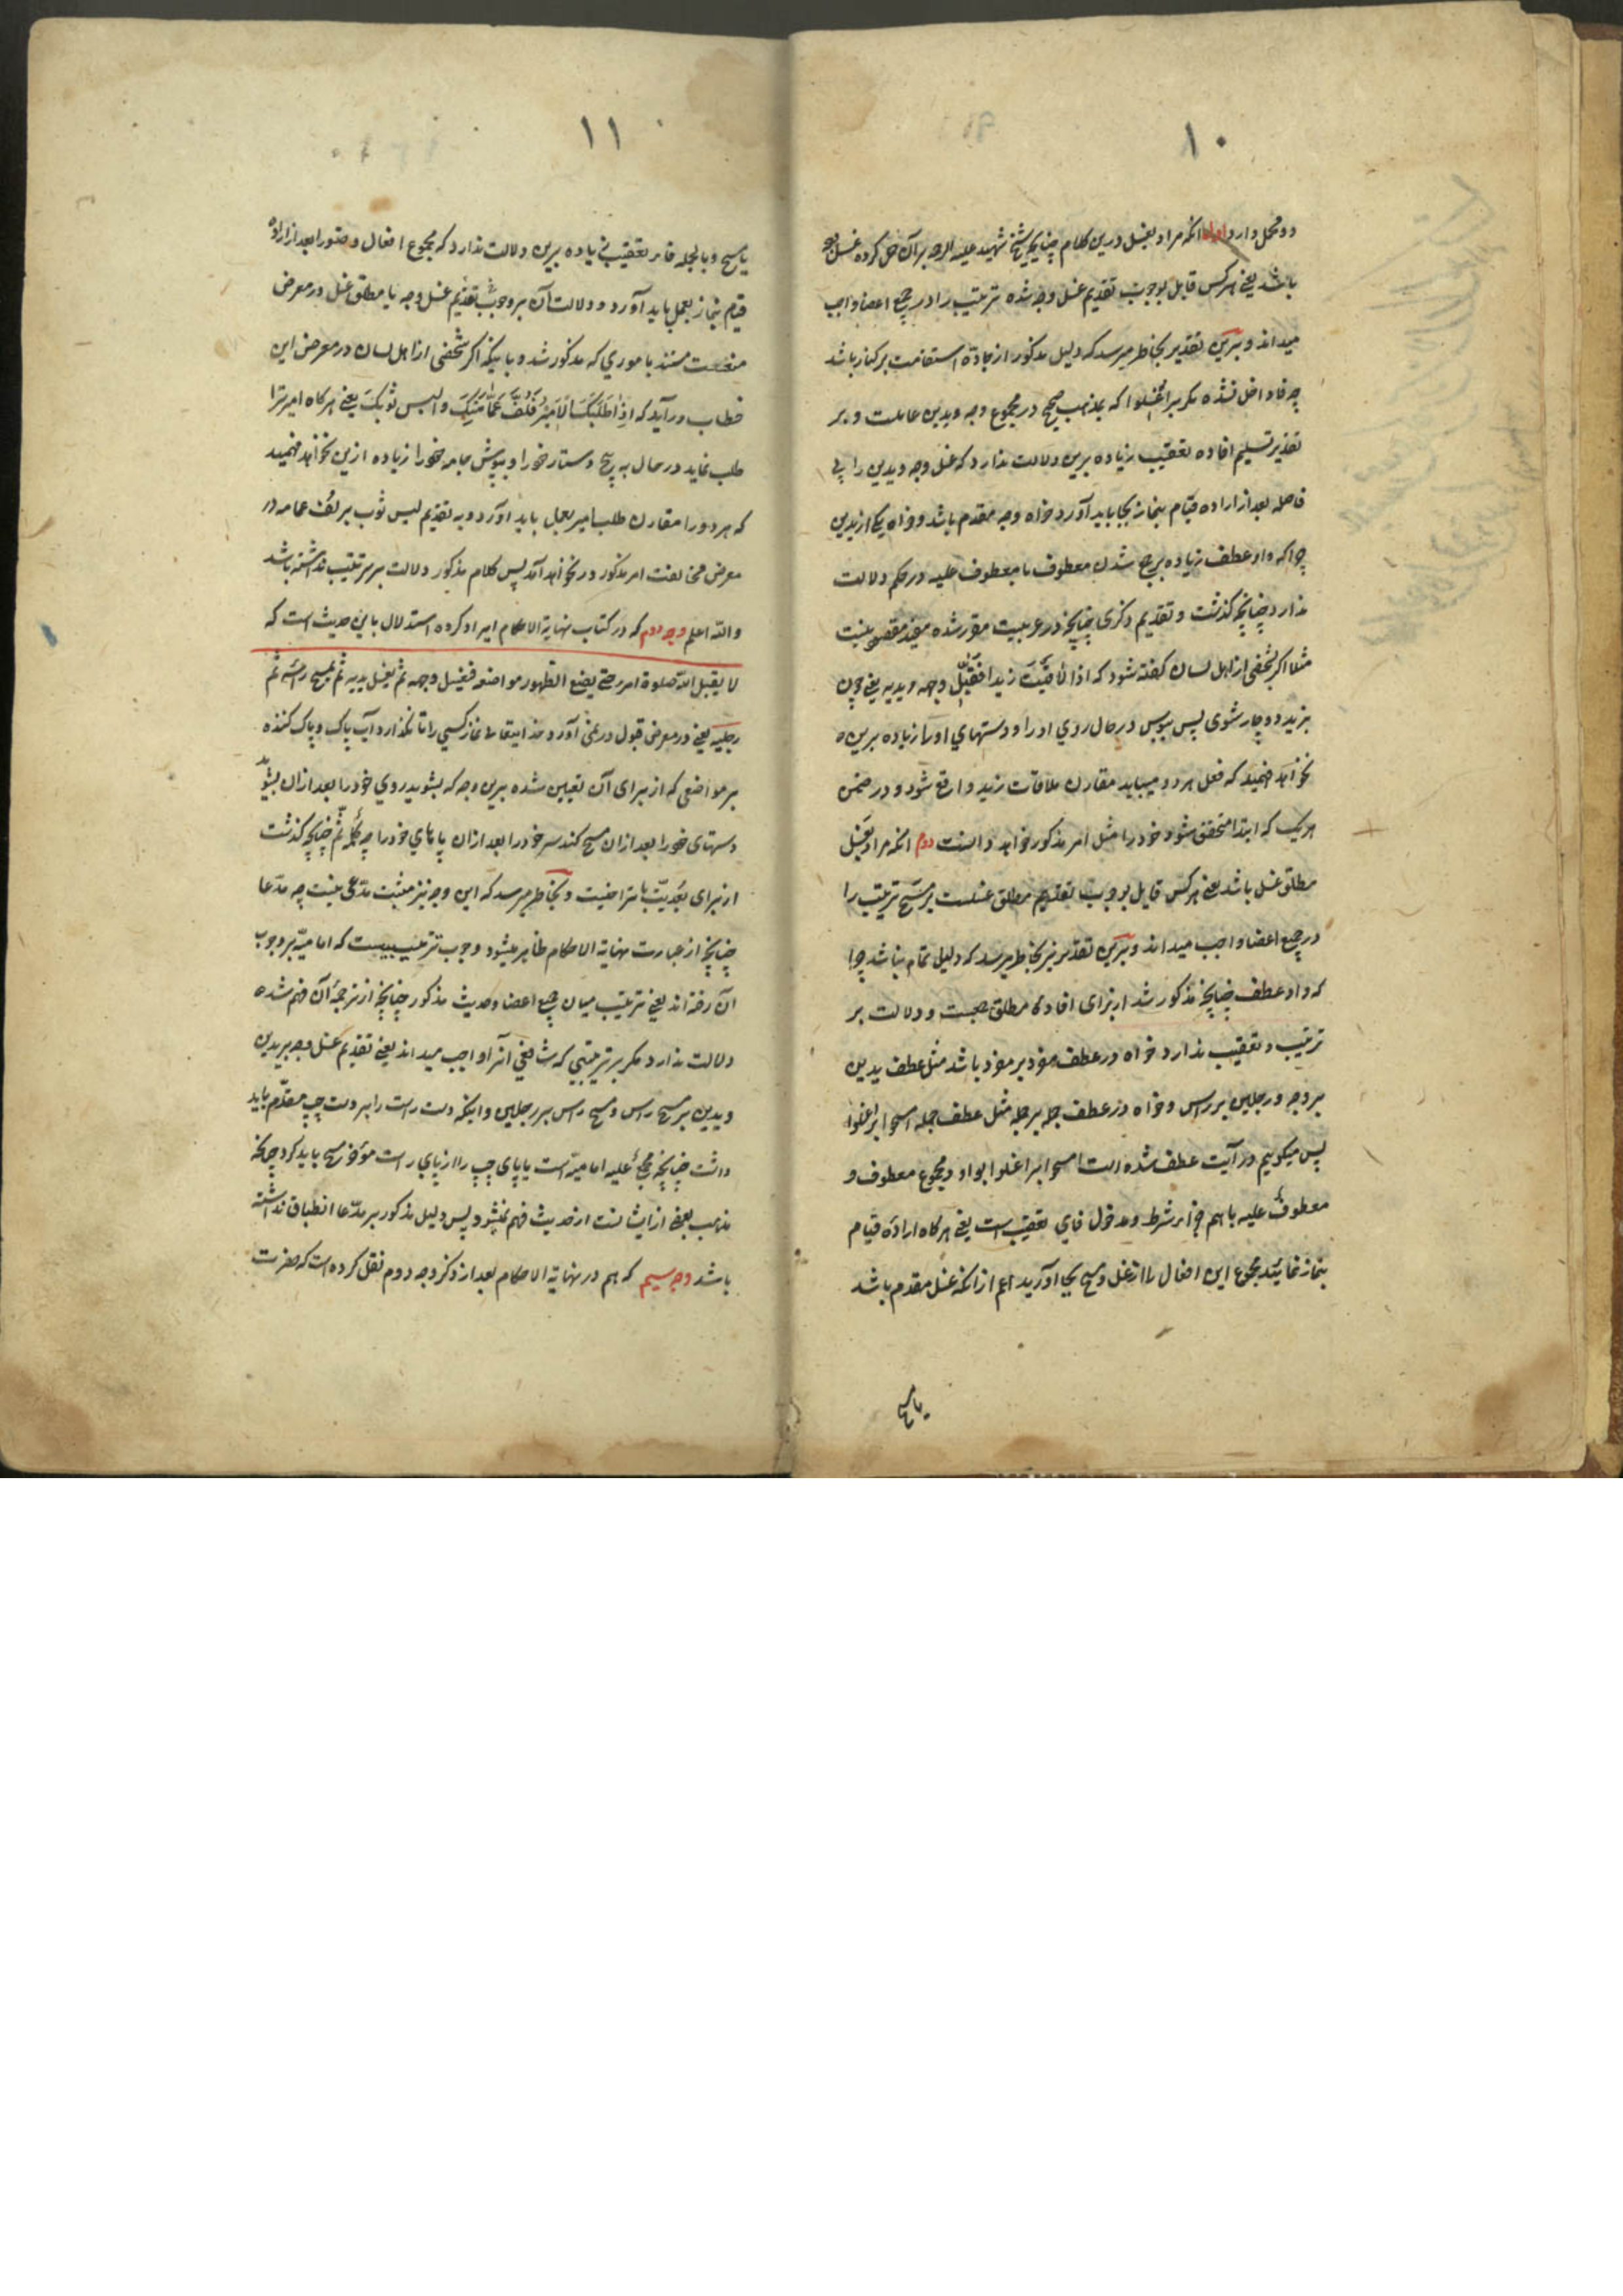 ۱۰
دو محمل دارد اول آنکه مراد بغسل درین کلام چنانچه شیخ شهید علیه الرحمه بر آن حمل کرده غسل وجه
باشد یعنی هر کس قایل بوجوب تقدیم غسل وجه شده ترتیب را در جمیع اعضا واجب
میداند و برین تقدیر بخاطر میرسد که دلیل مذکور از جادهٔ استقامت بر کنار باشد
چه فا داخل نشده مگر بر اغسلوا که بمذهب صحیح در مجموع وجه و یدین عاملست و بر
تقدیر تسلیم افاده تعقیب زیاده برین دلالت ندارد که غسل وجه و یدین را بی
فاصله بعد از اراده قیام بنماز بجا باید آورد خواه وجه مقدم باشد و خواه یکی از یدین
چرا که واو عطف زیاده بر جمع شدن معطوف با معطوف علیه در حکم دلالت
ندارد چنانچه گذشت و تقدیم ذکری چنانچه در عربیت مقرر شده مفید مقصود نیست
مثلا اگر بشخصی از اهل لسان گفته شود که اذا لاقیت زیدا فقبل وجهه و یدیه یعنی چون
بزید دوچار شوی پس ببوس در حال روی او را و دستهای او را زیاده برین
نخواهد فهمید که فعل هر دو میباید مقارن ملاقات زید واقع شود و در ضمن
هر یک که ابتدا متحقق شود خود را ممتثل امر مذکور خواهد دانست دوم آنکه مراد بغسل
مطلق غسل باشد یعنی هر کس قایل بوجوب تقدیم مطلق غسلست بر مسح ترتیب را
در جمیع اعضا واجب میداند و برین تقدیر نیز بخاطر میرسد که دلیل تمام نباشد چرا
که واو عطف چنانچه مذکور شد از برای افادهٔ مطلق جمعیت و دلالت بر
ترتیب و تعقیب ندارد خواه در عطف مفرد بر مفرد باشد مثل عطف یدین
بر وجه و رجلین بر راس و خواه در عطف جمله بر جمله مثل عطف جمله امسحوا بر اغسلوا
پس میگوییم در آیت عطف شده است امسحوا بر اغسلوا بواو و مجموع معطوف و
معطوف علیه باهم جزاء شرط و مدخول فای تعقیب است یعنی هر گاه ارادهٔ قیام
بنماز نمائید مجموع این افعال را از غسل و مسح بجا آورید اعم از آنکه غسل مقدم باشد
یا مسح
۱۱
یا مسح و بالجمله فاء تعقیب زیاده برین دلالت ندارد که مجموع افعال وضو را بعد از اراده
قیام بنماز بعمل باید آورد و دلالت آن بر وجوب تقدیم غسل وجه یا مطلق غسل در معرض
منعست مستند باموری که مذکور شد و باینکه اگر شخصی از اهل لسان در معرض این
خطاب درآید که اذا طلبک الامیر فلف عمامتک و البس ثوبک یعنی هر گاه امیر ترا
طلب نماید در حال به پیچ دستار خود را و بپوش جامه خود را زیاده ازین نخواهد فهمید
که هر دو را مقارن طلب امیر بعمل باید آورد و به تقدیم لبس ثوب بر لف عمامه در
معرض مخالفت امر مذکور در نخواهد آمد پس کلام مذکور دلالت بر ترتیب نداشته باشد
والله اعلم وجه دوم که در کتاب نهایة الاحکام ایراد کرده استدلال باین حدیث است که
لا یقبل الله صلوة امرء حتی یضع الطهور مواضعه فیغسل وجهه ثم یغسل یدیه ثم یمسح راسه ثم
رجلیه یعنی در معرض قبول در نمی آورد خدایتعالی نماز کسی را تا نگذارد آب پاک و پاک کننده
بر مواضعی که از برای آن تعیین شده برین وجه که بشوید روی خود را بعد از آن بشوید
دستهای خود را بعد از آن مسح کند سر خود را بعد از آن پاهای خود را چه کلمهٔ ثم چنانچه گذشت
از برای بعدیت با تراخیست و بخاطر میرسد که این وجه نیز مثبت مدعی نیست چه مدعا
چنانچه از عبارت نهایة الاحکام ظاهر میشود وجوب ترتیبیست که امامیه بر وجوب
آن رفته اند یعنی ترتیب میان جمیع اعضا و حدیث مذکور چنانچه از ترجمهٔ آن فهم شده
دلالت ندارد مگر بر ترتیبی که شافعی آنرا واجب میداند یعنی تقدیم غسل وجه بر یدین
و یدین بر مسح راس و مسح راس بر رجلین و اینکه دست راست را بر دست چپ مقدم باید
داشت چنانچه مجمع علیه امامیه است یا پای چپ را از پای راست مؤخر مسح باید کرد چنانکه
مذهب بعضی از ایشانست از حدیث فهم نمیشود پس دلیل مذکور بر مدعا انطباق نداشته
باشد وجه سیم که هم در نهایة الاحکام بعد از ذکر وجه دوم نقل کرده است که حضرت